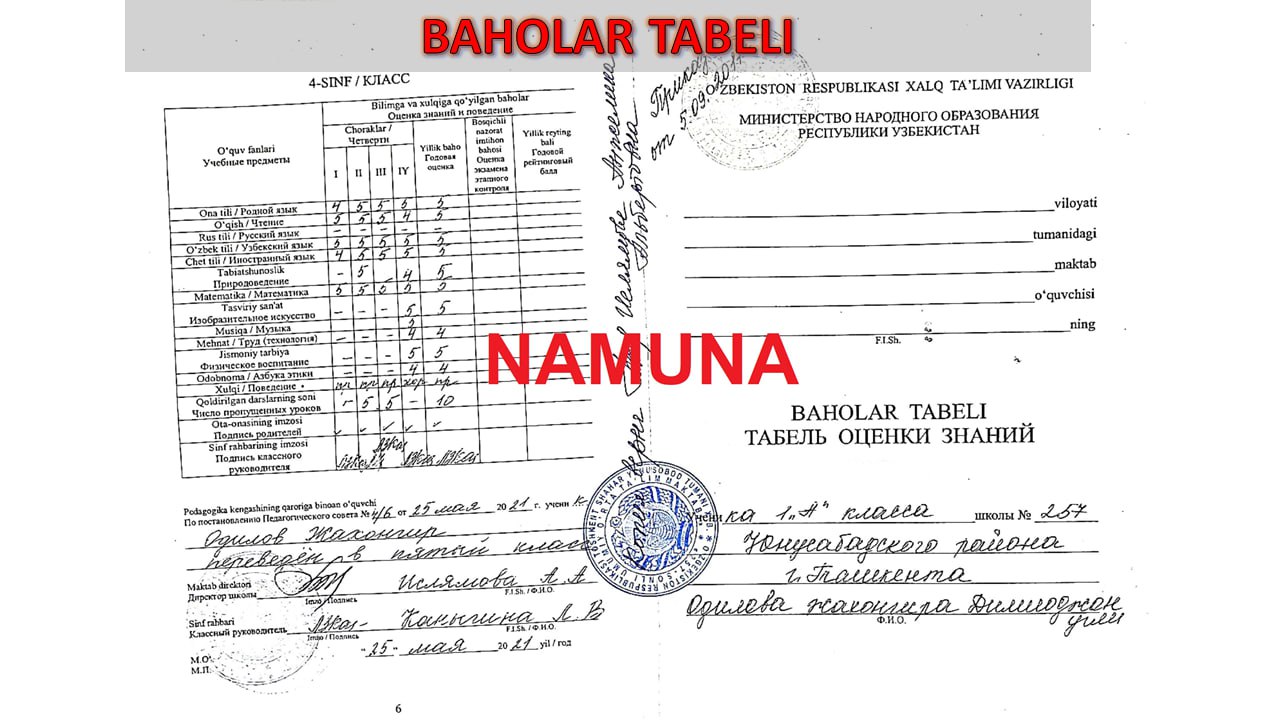 BAHOLAR TABELI
4-SINF / КЛАСС
O'quv fanlari
Учебные предметы
Bilimga va xulqiga qo'yilgan baholar
Оценка знаний и поведение
Choraklar /
Четверти
I II III IY
Yillik baho
Годовая
оценка
Bosqichli
nazorat
imtihon
bahosi
Оценка
экзамена
этапного
контроля
Yillik reyting
bali
Годовой
рейтинговый
балл
Ona tili / Родной язык 4 5 5 5 5
O'qish / Чтение 5 5 5 4 5
Rus tili / Русский язык - - - - -
O'zbek tili / Узбекский язык 5 5 5 5 5
Chet tili / Иностранный язык 4 5 5 5 5
Tabiatshunoslik
Природоведение - 5 4 5
Matematika / Математика 5 5 5 5 5
Tasviriy san'at
Изобразительное искусство - - - 5 5
Musiqa / Музыка
Mehnat / Труд (технология) - - - 4 4
Jismoniy tarbiya
Физическое воспитание - - - 5 5
Odobnoma / Азбука этики - - - 4 4
Xulqi / Поведение пр пр пр хор пр
Qoldirilgan darslarning soni
Число пропущенных уроков - 5 5 - 10
Ota-onasining imzosi
Подпись родителей
Sinf rahbarining imzosi
Подпись классного
руководителя
Pedagogika kengashining qaroriga binoan o'quvchi
По постановлению Педагогического совета № 4/6 от 25 мая 2021 г. учени к
Одилов Жахонгир
переведён в пятый класс
Maktab direktori
Директор школы Ислямова А. А
Imzo / Подпись F.I.Sh. / Ф.И.О.
Sinf rahbari
Классный руководитель Каныгина Л. В
Imzo / Подпись F.I.Sh. / Ф.И.О.
"25" мая 2021 yil / год
M.O'.
М.П.
6
Приказ
от 5.09.2017
O'ZBEKISTON RESPUBLIKASI XALQ TA'LIMI VAZIRLIGI
МИНИСТЕРСТВО НАРОДНОГО ОБРАЗОВАНИЯ
РЕСПУБЛИКИ УЗБЕКИСТАН
viloyati
tumanidagi
maktab
o'quvchisi
ning
F.I.Sh.
NAMUNA
BAHOLAR TABELI
ТАБЕЛЬ ОЦЕНКИ ЗНАНИЙ
Учени ка 1 „А" класса школы № 257
Юнусабадского района
г. Ташкента
Одилова Жахонгира Дилшоджон
угли
Ф.И.О.